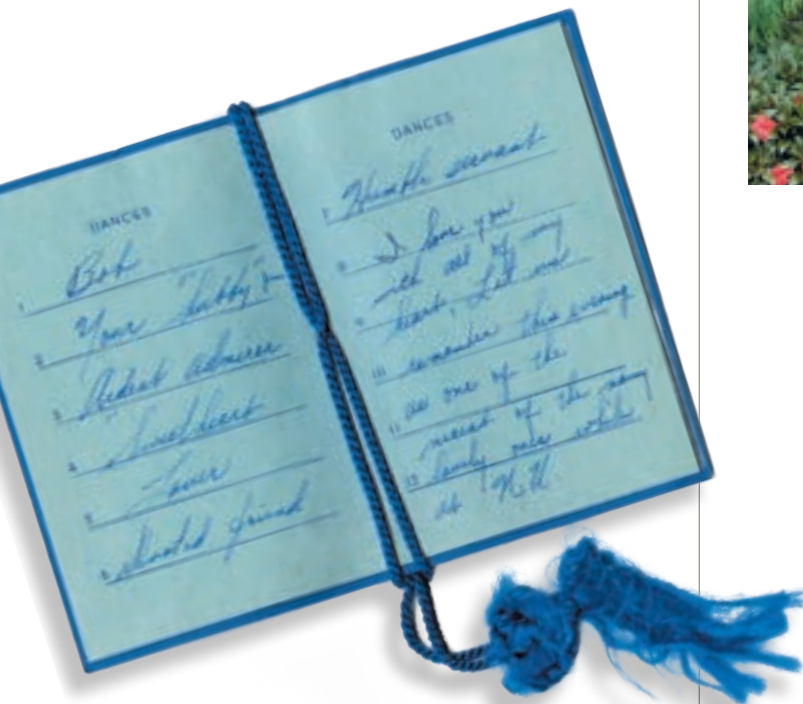 DANCES
1 Bob
2 Your "hubby"
3 Ardent admirer
4 Sweetheart
5 Lover
6 Devoted friend
DANCES
7 Humble servant
8 I love you
9 with all of my
10 heart. Let me
remember this evening
11 as one of the
12 nicest of the many
lovely ones while
at N.U.